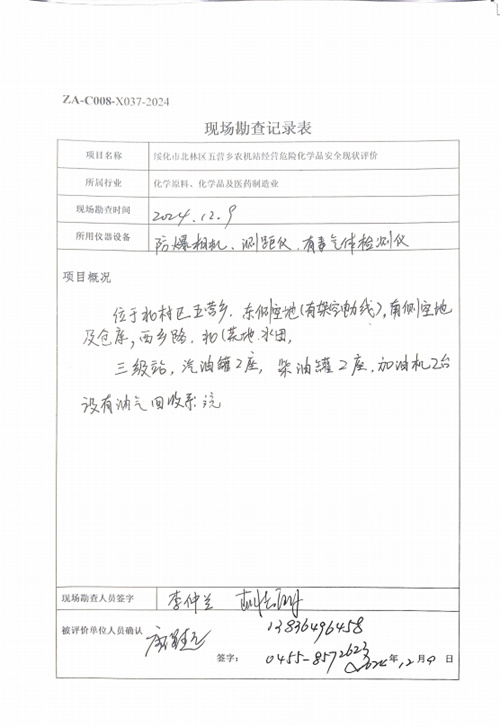 ZA-C008-X037-2024
现场勘查记录表
项目名称 绥化市北林区五营乡农机站经营危险化学品安全现状评价
所属行业 化学原料、化学品及医药制造业
现场勘查时间 2024.12.9
所用仪器设备 防爆相机、测距仪、有毒气体检测仪
项目概况
位于北林区五营乡. 东侧空地(有架空电力线), 南侧空地
及仓库, 西乡路. 北 水田,
三级站, 汽油罐2座, 柴油罐2座. 加油机2台
设有油气回收系统
现场勘查人员签字 李仲兰
被评价单位人员确认 13836496458
签字: 0455-8572623 2024年12月9日